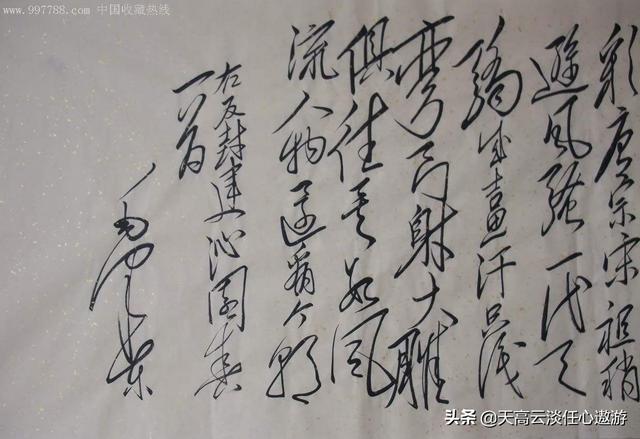 www.997788.com 中国收藏热线
彩唐宗宋祖稍
逊风骚一代天
骄成吉思汗只识
弯弓射大雕
俱往矣数风
流人物还看今朝
右反封建沁園春
一首
毛泽东
头条 @天高云淡任心遨游